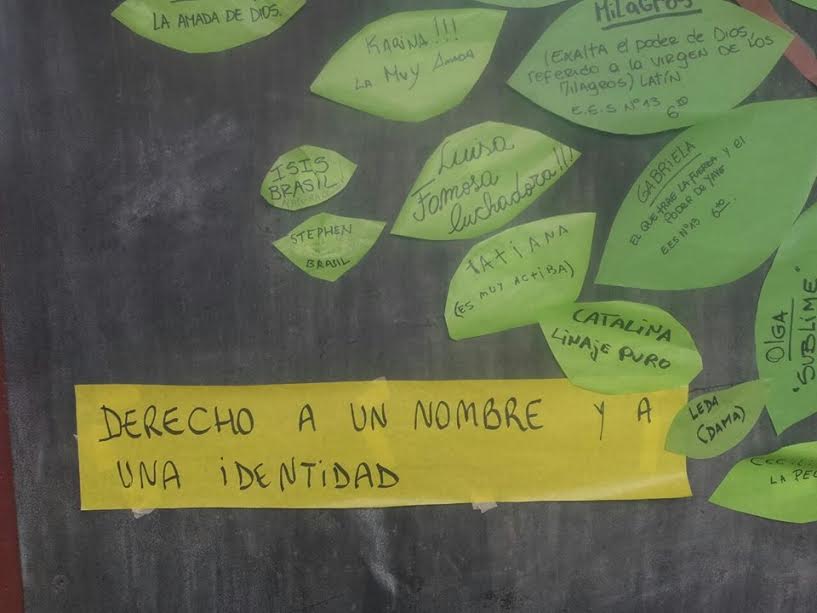 LA AMADA DE DIOS.
KARINA!!!
LA MUY AMADA
MILAGROS
(EXALTA el poder de DIOS,
referido a la VIRGEN DE LOS
MILAGROS) LATÍN
E.E.S Nº 13 6to
ISIS
BRASIL
Luisa
Famosa
luchadora!!!
GABRIELA
EL QUE TRAE LA FUERZA y el
PODER DE YAVE
E.E.S Nº 13 6to.
STEPHEN
BRASIL
TATIANA
(ES MUY ACTIBA)
CATALINA
LINAJE PURO
OLGA
"SUBLIME"
LEDA
(DAMA)
LA PEQ
DERECHO A UN NOMBRE Y A
UNA IDENTIDAD